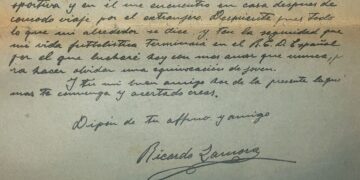 sportiva y en él me encuentro en casa después de
comodo viaje por el extranjero. Despreciate pues todo
lo que mi alrededor se dice y ten la seguridad que
mi vida futbolistica terminara en el R.C.D. Español
por el que lucharé hoy con mas amor que nunca, pa
ra hacer olvidar una equivocacion de joven.
Y tu mi buen amigo haz de la presente lo que
mas te convenga y acertado creas.
Dispon de tu affmo y amigo
Ricardo Zamora